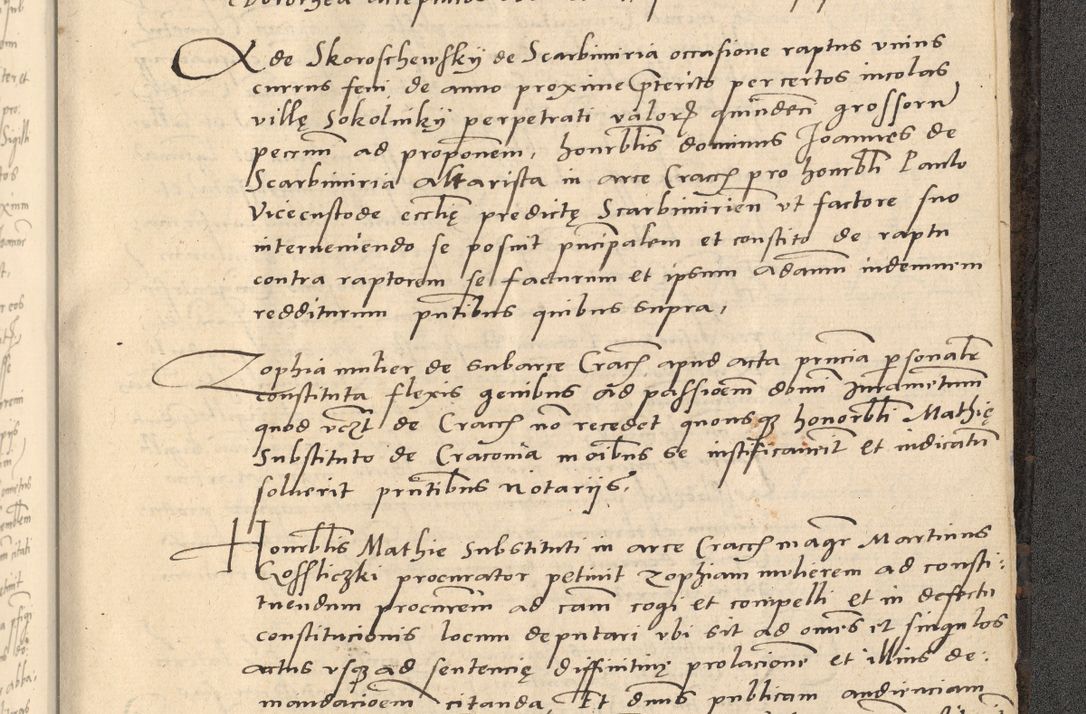 de Skoroschewsky de Scarbimiria occasione raptus unius
currus feni, de anno proxime pterito per certos incolas
villę Sokolniky perpetrati valor quinden grossorum
pecun ad proponem, honrblis dominus Joannes de
Scarbimiria altarista in arce Cracc pro honrbli Paulo
Vicecustode ecclię predictę Scarbimirien ut factore suo
interueniendo se posuit pncipalem et constito de raptu
contra raptorem se facturum et ipsum adamm indemnem
redditurum pntibus quibus supra,
Zophia mulier de subarce Cracc apud acta pncia psonale
constituta flexis genibus ad passioem domi Juramentum
quod de Cracc no recedet quousque honorbli Mathię
Substituto de Cracouia moibus se iustificauerit et iudicatu
soluerit pntibus notariis,
Honrblis Mathie Substituti in arce Cracc magr Martinus
Gosliczki procurator petiuit Zophiam mulierem ad consti:
tuendum procurem ad cam cogi et compelli et in defectu
constitucionis locum deputari ubi sit ad omes et singulos
actus usque ad sentencię diffinitiuę prolacione et illius de:
mandacioem citanda, Et dnus publicam audienciam